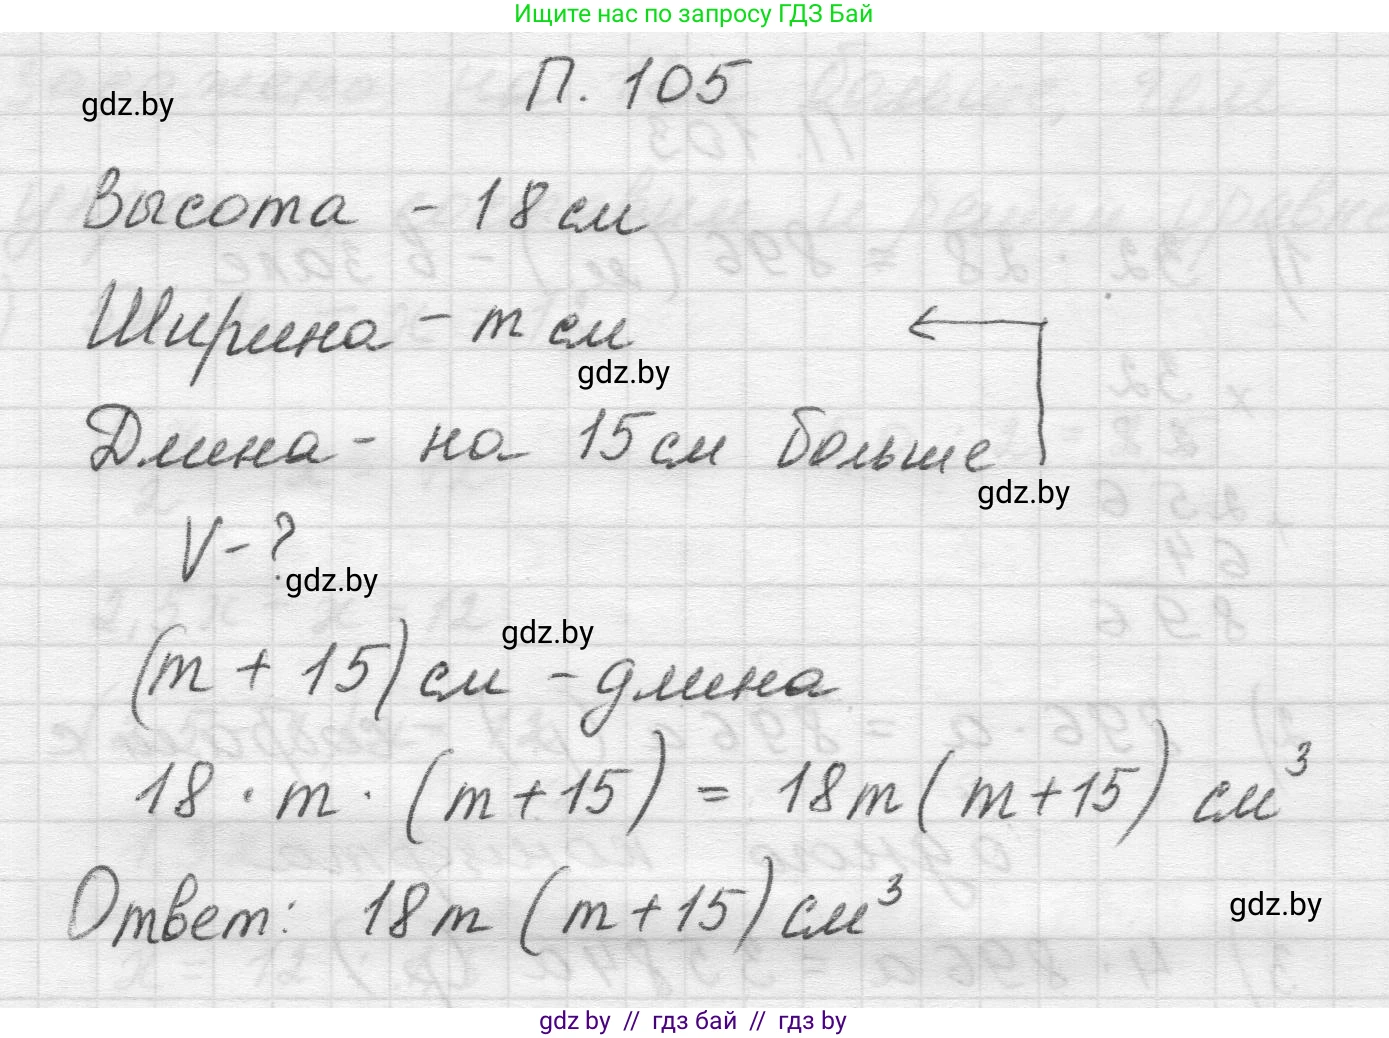 Ищите нас по запросу ГДЗ Бай
П. 105
gdz.by
Высота - 18 см
Ширина - m см
gdz.by
Длина - на 15 см больше
gdz.by
V - ?
gdz.by
gdz.by
(m + 15) см - длина
18 · m · (m + 15) = 18m (m + 15) см³
Ответ: 18m (m + 15) см³
gdz.by
gdz by // гдз бай // гдз by